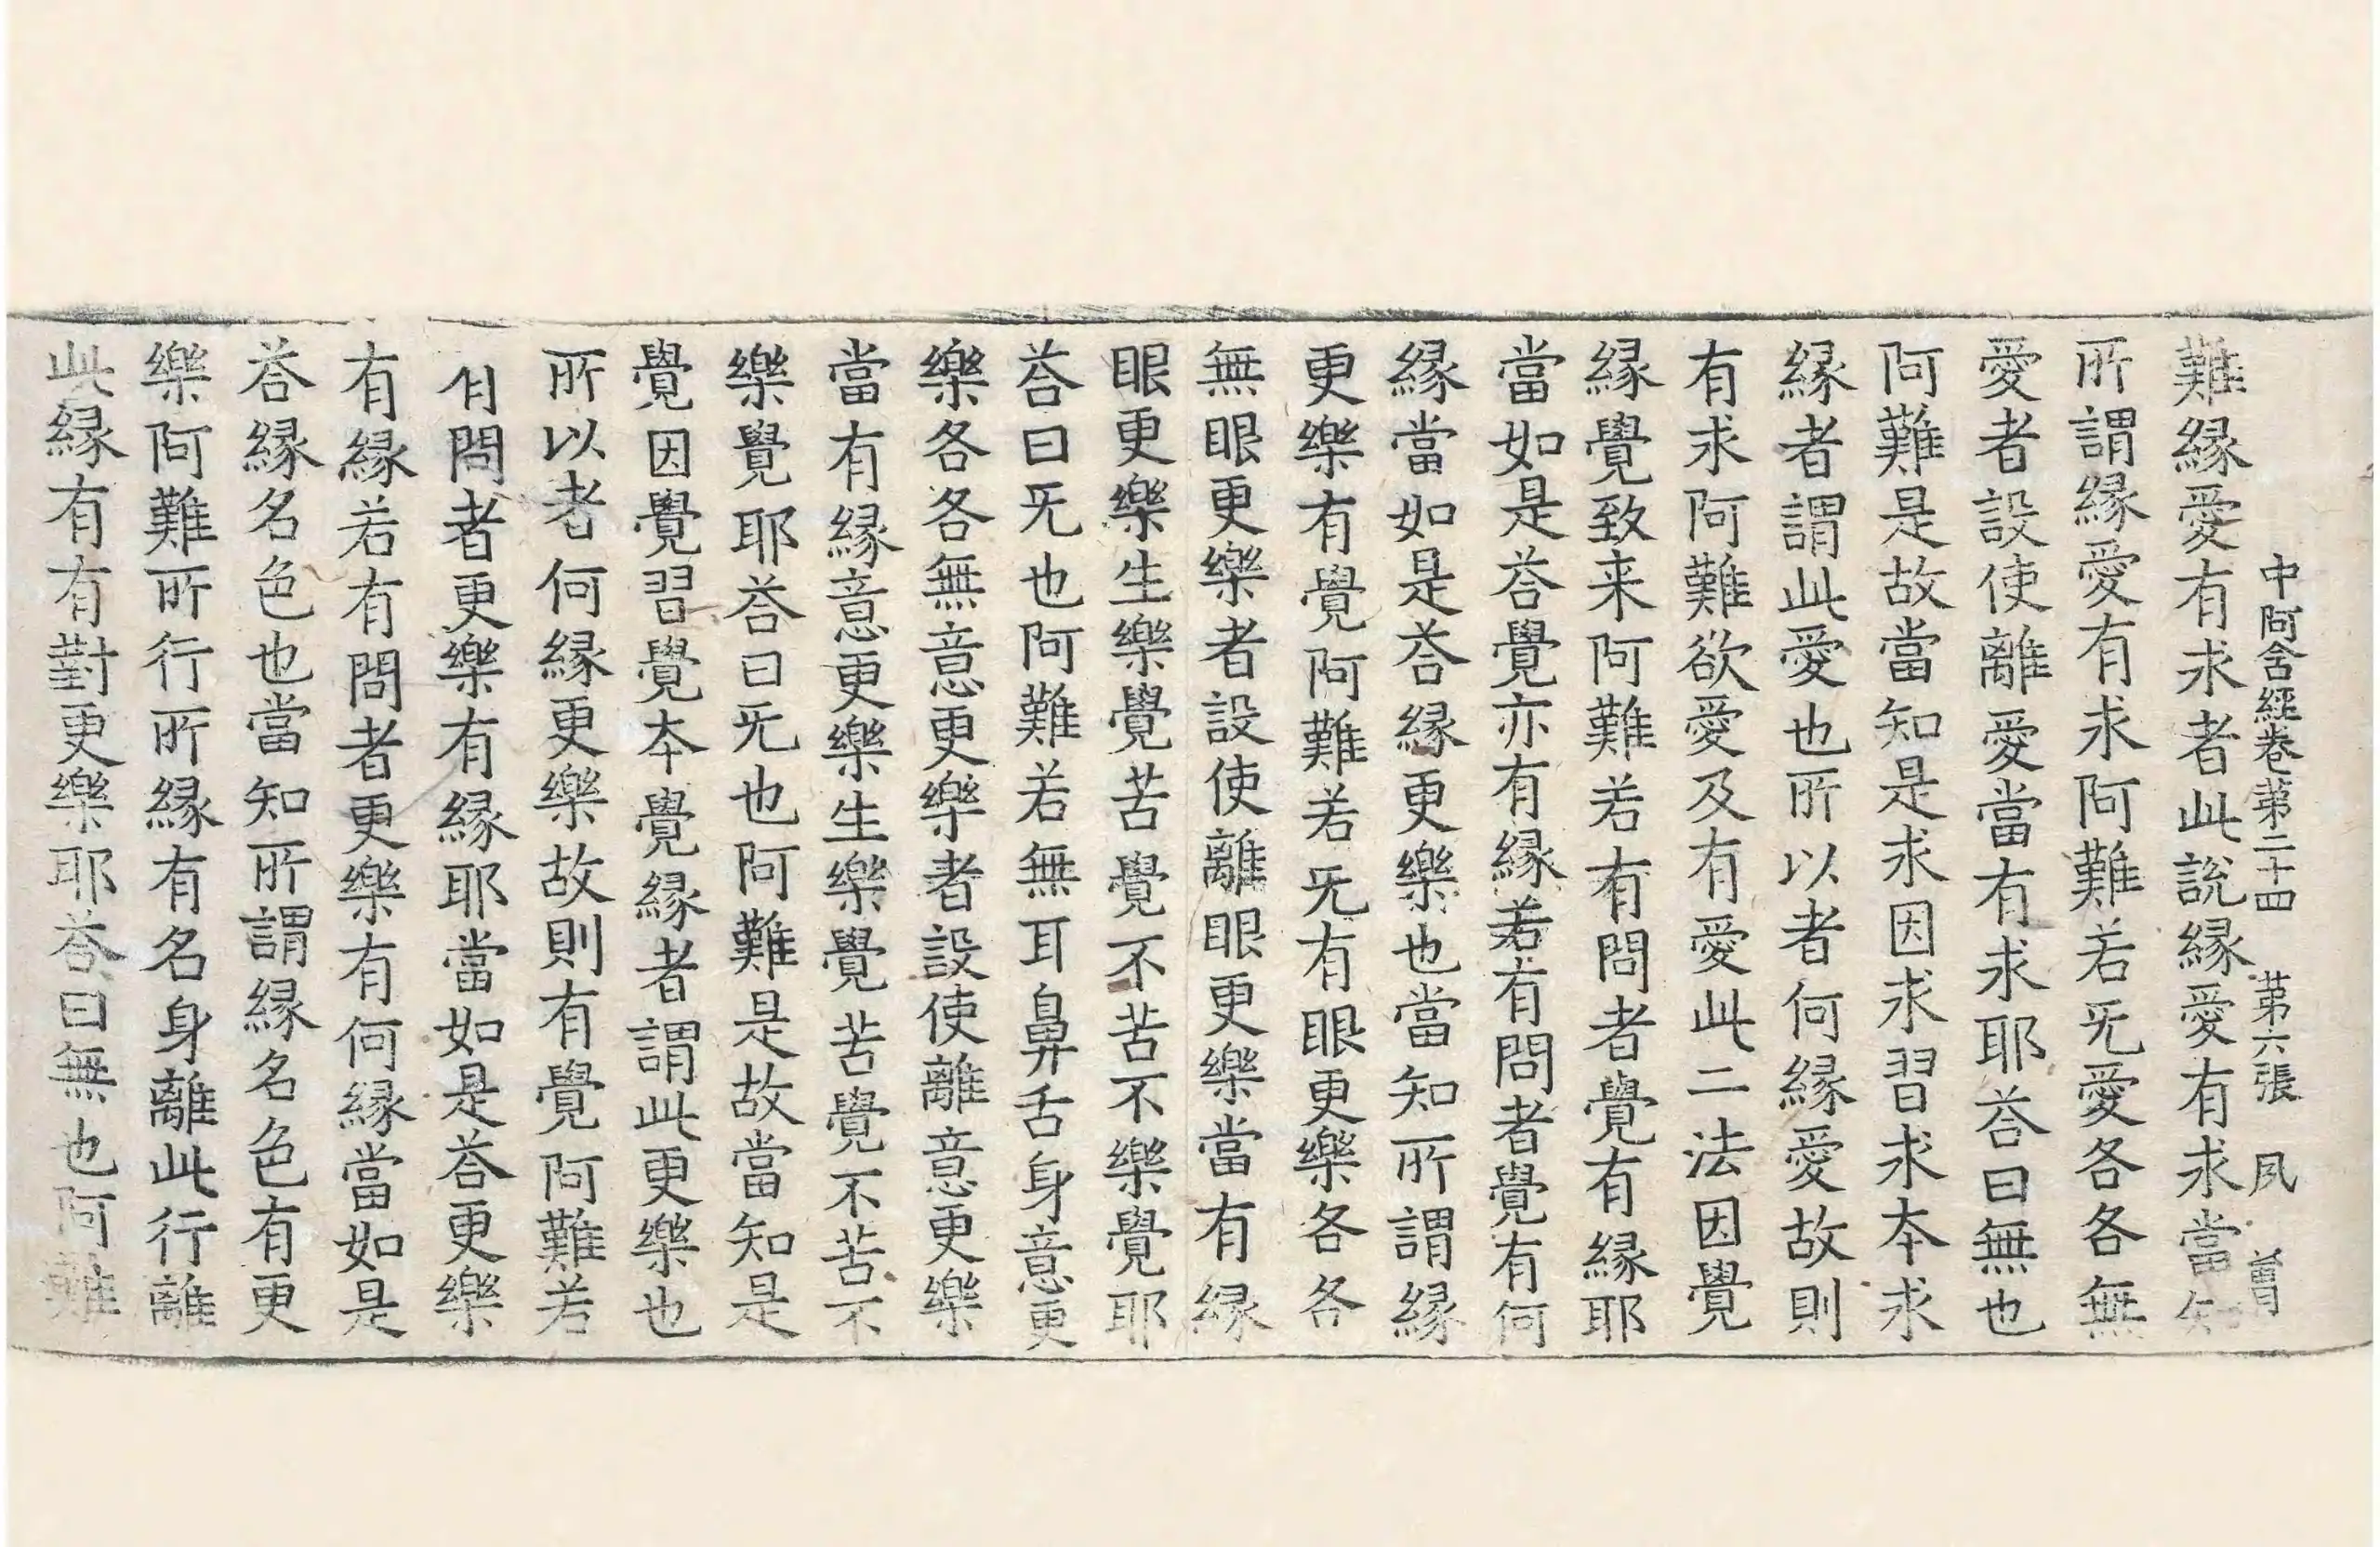 中阿含經卷苐二十四　苐六張　夙　曽
難縁愛有求者此說縁愛有求當知
所謂縁愛有求阿難若旡愛各各無
愛者設使離愛當有求耶荅曰無也
阿難是故當知是求因求習求本求
縁者謂此愛也所以者何縁愛故則
有求阿難欲愛及有愛此二法因覺
縁覺致来阿難若有問者覺有縁耶
當如是荅覺亦有縁若有問者覺有何
縁當如是荅縁更樂也當知所謂縁
更樂有覺阿難若旡有眼更樂各各
無眼更樂者設使離眼更樂當有縁
眼更樂生樂覺苦覺不苦不樂覺耶
荅曰旡也阿難若無耳鼻舌身意更
樂各各無意更樂者設使離意更樂
當有縁意更樂生樂覺苦覺不苦不
樂覺耶荅曰旡也阿難是故當知是
覺因覺習覺本覺縁者謂此更樂也
所以者何縁更樂故則有覺阿難若
有問者更樂有縁耶當如是荅更樂
有縁若有問者更樂有何縁當如是
荅縁名色也當知所謂縁名色有更
樂阿難所行所縁有名身離此行離
此縁有有對更樂耶荅曰無也阿難